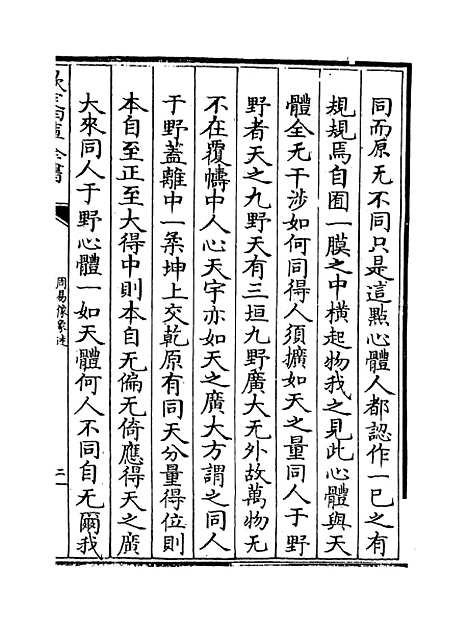 同而原无不同只是這點心體人都認作一已之有
規規焉自囿一膜之中橫起物我之見此心體與天
體全无干涉如何同得人須擴如天之量同人于野
野者天之九野天有三垣九野廣大无外故萬物无
不在覆幬中人心天宇亦如天之廣大方謂之同人
于野蓋離中一柔坤上交乾原有同天分量得位則
本自至正至大得中則本自无偏无倚應得天之廣
大來同人于野心體一如天體何人不同自无爾我
欽定四庫全書
周易像象述